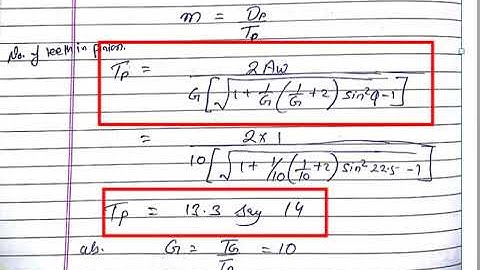 m = Dp/Tp
No. of teeth in pinion.
Tp = 2Aw / G[√1+1/G(1/G+2)sin²φ-1]
= 2×1 / 10[√1+1/10(1/10+2)sin²22.5-1]
Tp = 13.3 say 14
G = TG/Tp = 10